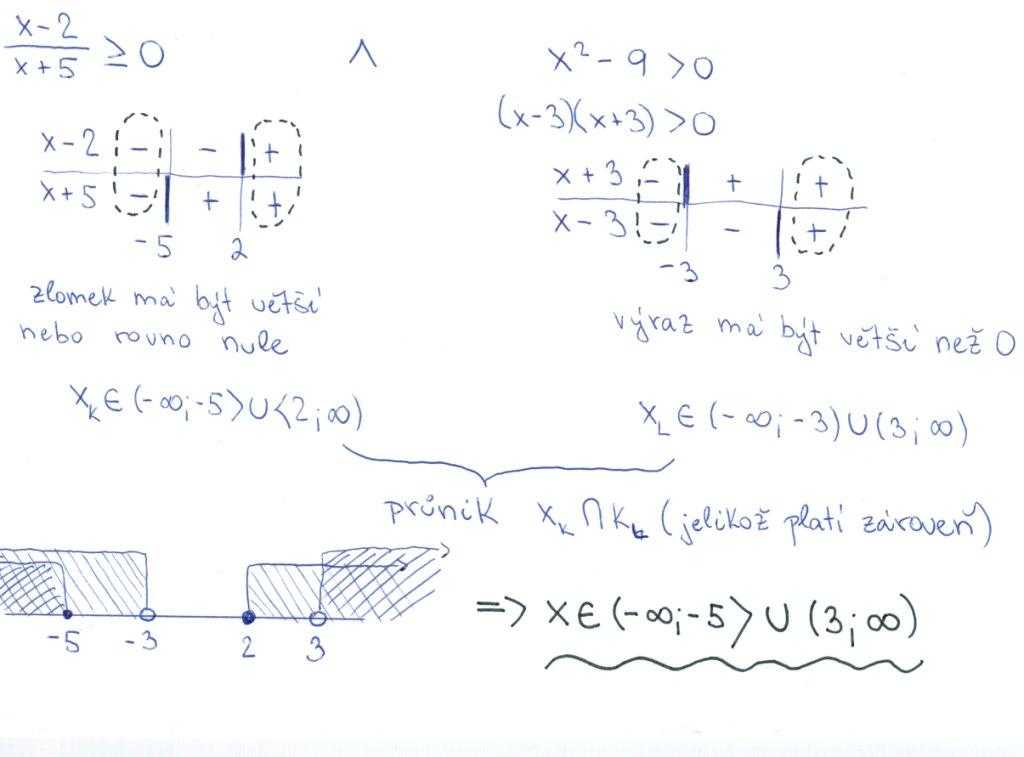 x-2 / x+5 ≥ 0 ∧ x² - 9 > 0
(x-3)(x+3) > 0
x-2 - - +
x+5 - + +
-5 2
x+3 - + +
x-3 - - +
-3 3
zlomek má být větší
nebo rovno nule
výraz má být větší než 0
x_k ∈ (-∞; -5> ∪ <2; ∞)
x_L ∈ (-∞; -3) ∪ (3; ∞)
průnik x_k ∩ K_L (jelikož platí zároveň)
-5 -3 2 3
=> x ∈ (-∞; -5> ∪ (3; ∞)